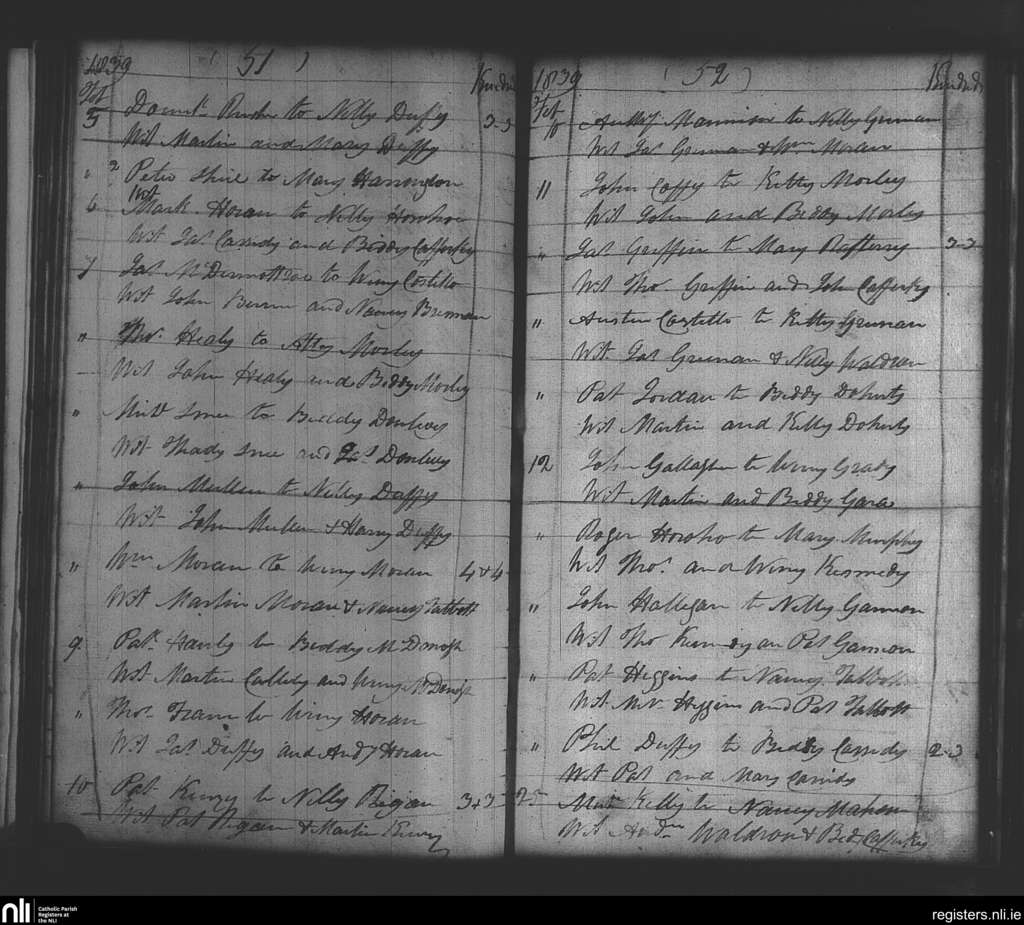 1839 (51) Kindred
Feb
5 Domk. Rush to Nelly Duffy 3-3
Wit Martin and Mary Duffy
" Peter to Mary
6 Mark Horan to Nelly Horoho
Wit Jas. Cassidy and Biddy Cafferky
7 Jas. McDermottroe to Winy Costillo
Wit John and Nancy Brennan
" Thos. Healy to Morley
Wit John Healy and Biddy Morley
" to Biddy Donlevy
Wit Thady and Jas. Donlevy
" John Mullen to Nelly Duffy
Wit John Mullen & Harry Duffy
" Wm Moran to Winy Moran 4+4
Wit Martin Moran & Nancy Talbott
9 Pat. Hanly to Biddy McDonogh
Wit Martin and Winy McDonogh
" Thos. to Winy Horan
Wit Jas. Duffy and Andy Horan
10 Pat. Kenny to Nelly Regan 3+3
Wit Pat Regan & Martin Kenny
1839 (52) Kindred
Feb
10 to Nelly Greenan
Wit Jas. Greenan & Wm Moran
11 John Coffy to Kitty Morley
Wit John and Biddy Morley
" Jas. Griffin to Mary Rafferty 3-3
Wit Tho. Griffin and John Cafferky
" Austin Costello to Kitty Greenan
Wit. Jas Greenan & Nelly Waldron
" Pat Jordan to Biddy Doherty
Wit Martin and Kitty Doherty
12 John Gallagher to Winy Grady
Wit Martin and Biddy Gara
" Roger Horoho to Mary Murphy
Wit Thos. and Winy Kennedy
" John Hallegan to Nelly Gannon
Wit Tho Pat Gannon
" Pat Higgins to Nancy Talbott
Wit Higgins and Pat Talbott
" Phil Duffy to Biddy Cassidy 2-3
Wit Pat and Mary Cassidy
Kelly to Nancy Mahon
Wit Waldron & Bidy Cafferky
nli Catholic Parish
Registers at
the NLI
registers.nli.ie